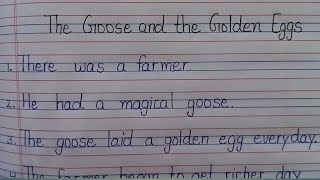 The Goose and the Golden Eggs
1. There was a farmer.
2. He had a magical goose.
3. The goose laid a golden egg everyday.
4. The farmer began to get richer day